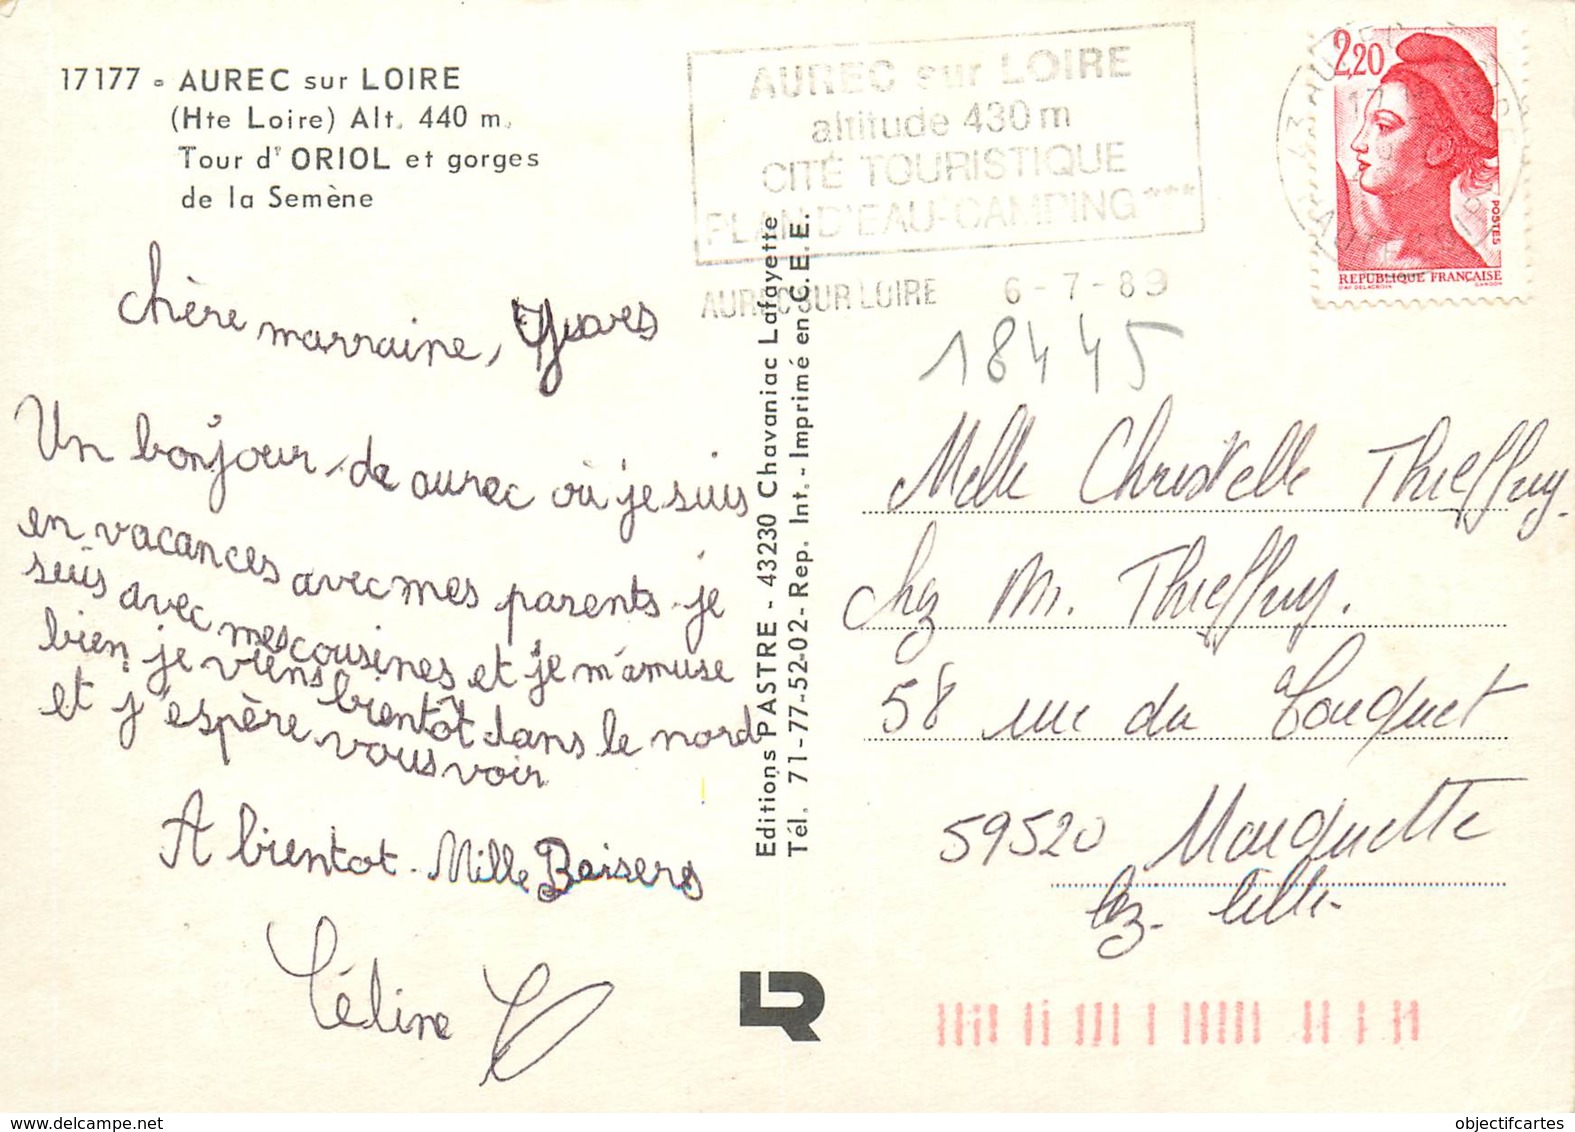 17177 - AUREC sur LOIRE
(Hte Loire) Alt. 440 m.
Tour d'ORIOL et gorges
de la Semène
chère marraine, Yves
Un bonjour de aurec où je suis
en vacances avec mes parents je
suis avec mes cousines et je m'amuse
bien je viens bientôt dans le nord
et j'espère vous voir
A bientot. Mille Baisers
Céline
Editions PASTRE - 43230 Chavaniac Lafayette
Tél. 71-77-52-02 - Rep. Int. - Imprimé en C.E.E.
LR
AUREC sur LOIRE
altitude 430 m
CITÉ TOURISTIQUE
PLAN D'EAU-CAMPING ***
AUREC SUR LOIRE 6-7-89
2,20
POSTES
REPUBLIQUE FRANÇAISE
D'AP. DELACROIX GANDON
18445
Melle Christelle Thieffry.
chez M. Thieffry.
58 rue du Touquet
59520 Marquette
lez-lille.
objectifcartes.com